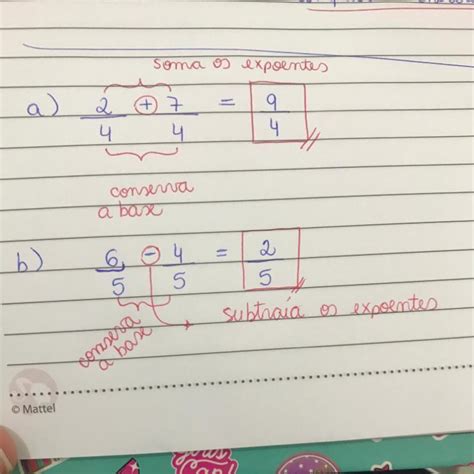 soma os expoentes
a) 2/4 + 7/4 = 9/4
conserva
a base
b) 6/5 - 4/5 = 2/5
subtraía os expoentes
conserva
a base
© Mattel